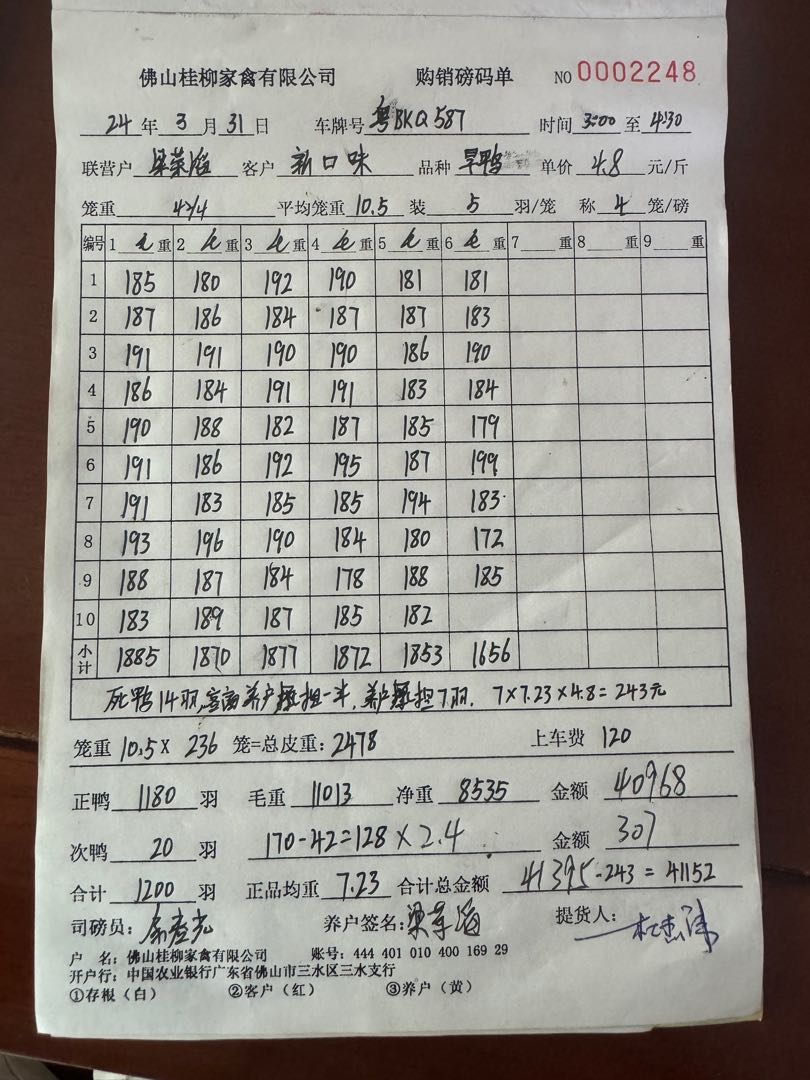 佛山桂柳家禽有限公司 购销磅码单 NO 0002248
24 年 3 月 31 日 车牌号 粤BKQ587 时间 3:00 至 4:30
联营户 梁荣 客户 新口味 品种 旱鸭 单价 4.8 元/斤
笼重 42/4 平均笼重 10.5 装 5 羽/笼 称 4 笼/磅
编号 1 重 2 重 3 重 4 重 5 重 6 重 7 重 8 重 9 重
1 185 180 192 190 181 181
2 187 186 184 187 187 183
3 191 191 190 190 186 190
4 186 184 191 191 183 184
5 190 188 182 187 185 179
6 191 186 192 195 187 199
7 191 183 185 185 194 183
8 193 196 190 184 180 172
9 188 187 184 178 188 185
10 183 189 187 185 182
小计 1885 1870 1877 1872 1853 1656
死鸭14羽, 养户承担一半, 养户承担7羽. 7×7.23×4.8=243元
笼重 10.5× 236 笼=总皮重: 2478 上车费 120
正鸭 1180 羽 毛重 11013 净重 8535 金额 40968
次鸭 20 羽 170-42=128×2.4 金额 307
合计 1200 羽 正品均重 7.23 合计总金额 41395-243=41152
司磅员: 养户签名: 梁 提货人:
户 名: 佛山桂柳家禽有限公司 账号: 444 401 010 400 169 29
开户行: 中国农业银行广东省佛山市三水区三水支行
①存根（白） ②客户（红） ③养户（黄）